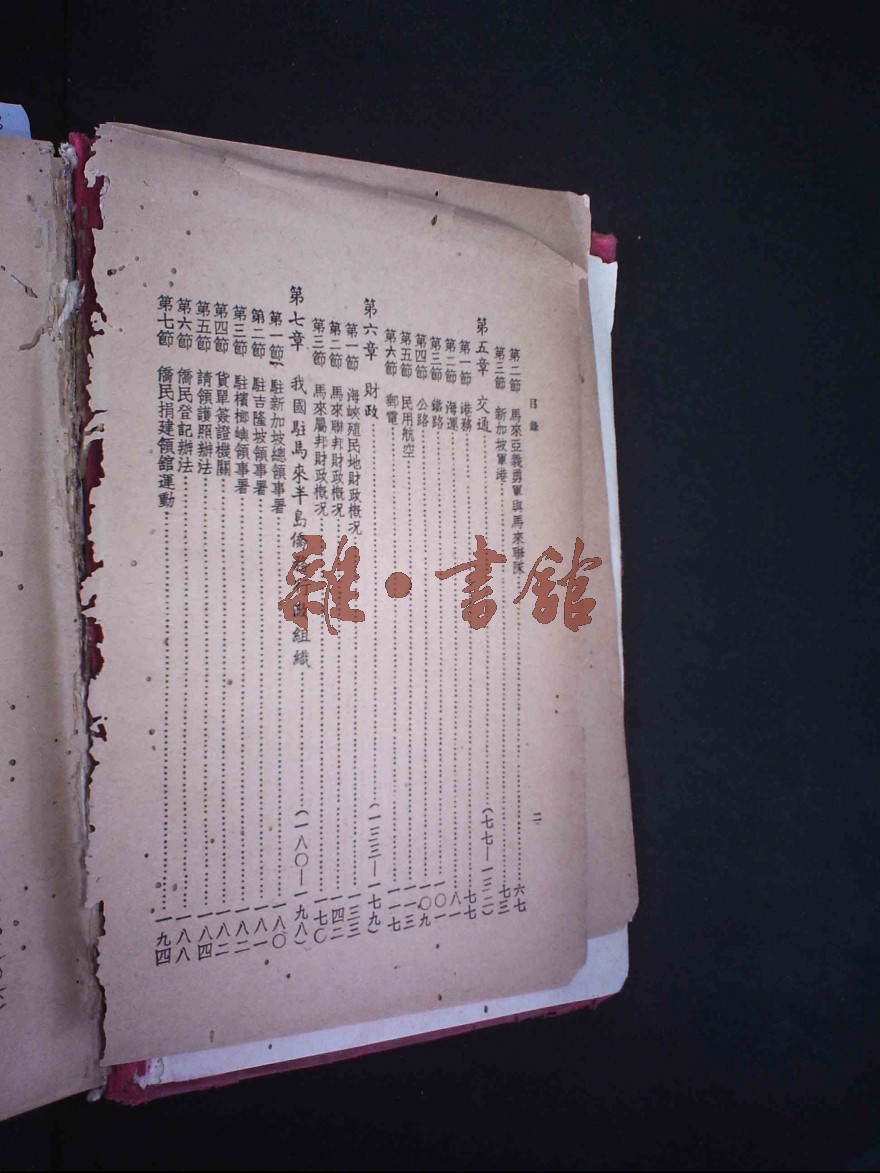 目錄
二
第二節 馬來亞義勇軍與馬來聯隊 六七
第三節 新加坡軍港 七三
第五章 交通 (七七—一三二)
第一節 港務 七七
第二節 海運 八一
第三節 鐵路 一〇一
第四節 公路 一〇九
第五節 民用航空 一一三
第六節 郵電 一一七
第六章 財政 (一三三—一七九)
第一節 海峽殖民地財政概況 一三三
第二節 馬來聯邦財政概況 一四二
第三節 馬來屬邦財政概況 一七〇
第七章 我國駐馬來半島僑務行政組織 (一八〇—一九八)
第一節 駐新加坡總領事署 一八〇
第二節 駐吉隆坡領事署 一八一
第三節 駐檳榔嶼領事署 一八二
第四節 貨單簽證機關 一八二
第五節 請領護照辦法 一八四
第六節 僑民登記辦法 一八八
第七節 僑民捐建領館運動 一九四
雜·書館